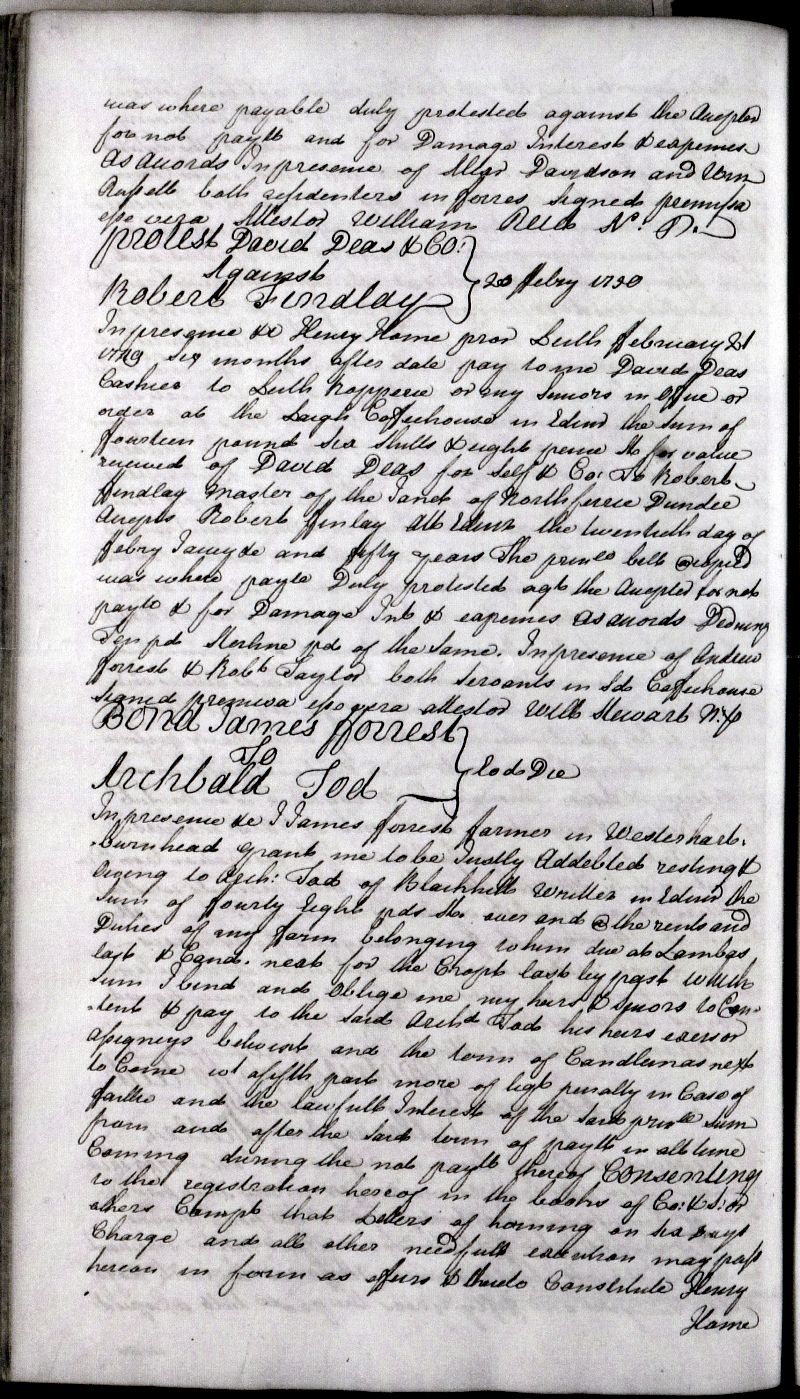 was where payable duly protested against the Accepter
for not paytt and for Damage Interest & expences
As accords In presence of Alexr Davidson and Wm
Russell both residenters in fforres Signed premissa
esse vera Attestor William Reid N: P.
Protest David Deas & Co:
Against
Robert Findlay
20 ffebry 1750
In presence &c Henry Home pror Leith ffebruary 21
1749 Six months after date pay to me David Deas
Cashier to Leith Ropperie or my Suxors in office or
order at the Laigh Coffeehouse in Edinr the Sum of
ffourteen pound Six Shills & eight pence St for value
received of David Deas for self & Co: To Robert
ffindlay Master of the Janet of Northferrie Dundee
Accepts Robert ffinlay Att Edinr the twentieth day of
ffebry Jajvijc and fifty years The prinll bill @ copied
was where payle Duly protested agt the Accepter for not
payts & for Damage Int & expences As accords Deducing
Ten pd Sterline pd of the Same. In presence of Andrew
fforrest & Robt Taylor both Servants in Sd Coffeehouse
Signed premissa esse vera attestor Will Stewart N:P
Bond James fforrest
To
Archbald Tod
Eod Die
In presence &c I James fforrest farmer in Wester hart.
.burnhead grant me to be Justly Addebted resting &
owing to Arch: Tod of Blackhill Writter in Edinr the
Sum of ffourty Eight pds St. over and @ the rents and
Duties of my ffarm belonging to him due at Lambas
last & Cand. next for the Cropt last by past Which
Sum I bind and Oblige me my heirs & Suxors to Con-
-tent & pay to the said Archd Tod his heirs exers or
assigneys betwixt and the term of Candlemas next
to Come wt a fifth part more of liqt penalty in Case of
ffailie and the lawfull Interest of the said prinll sum
from and after the said term of paytt in all time
Coming during the not paytt thereof Consenting
to the registration hereof in the books of Co: & S: or
others Compt that Letters of horning on six days
Charge and all other needfull execution may pass
hereon in form as effeirs & thereto Constitute Henry
Home